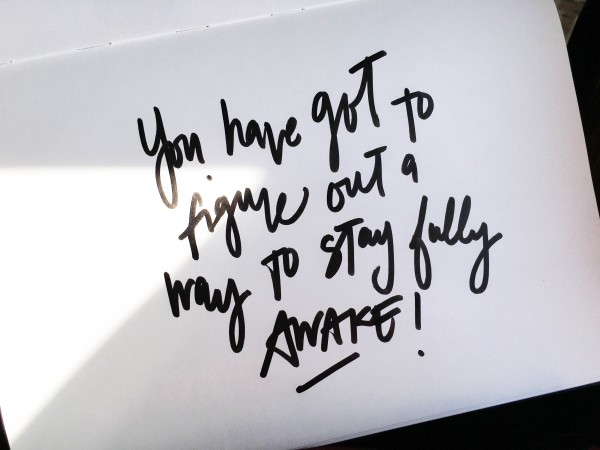 You have got to
figure out a
way to stay fully
AWAKE!